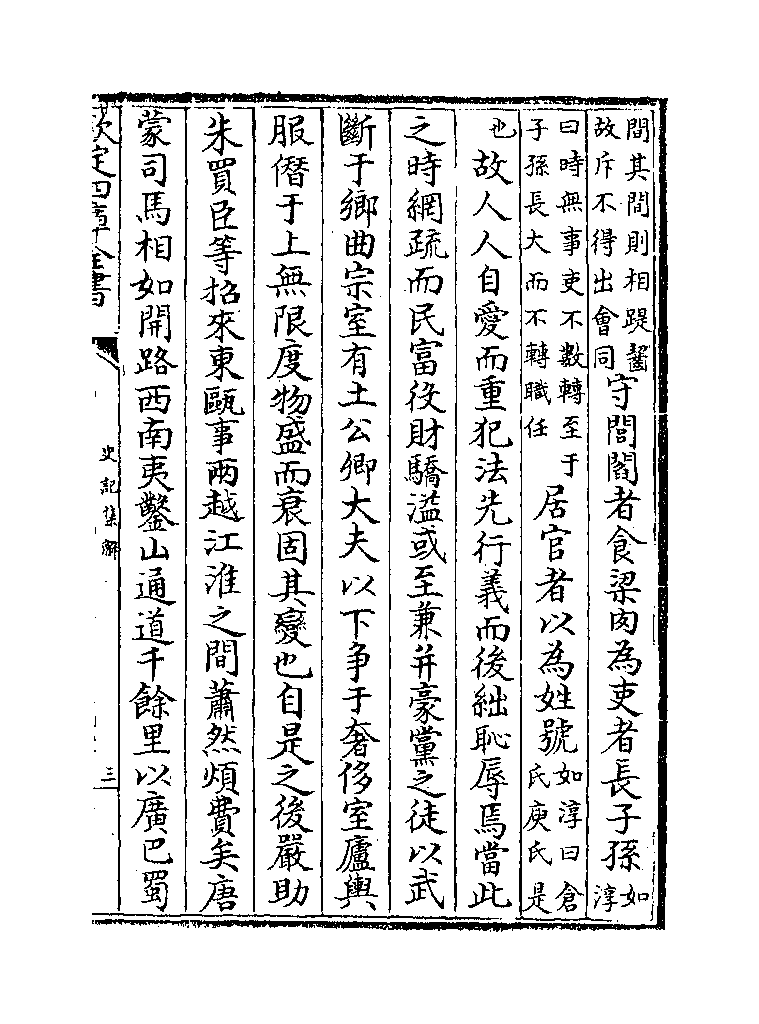 間其間則相踶齧故斥不得出會同守閭閻者食粱肉為吏者長子孫如淳
曰時無事吏不數轉至于子孫長大而不轉職任居官者以為姓號如淳曰倉氏庾氏是
也故人人自愛而重犯法先行義而後絀恥辱焉當此
之時網疏而民富役財驕溢或至兼并豪黨之徒以武
斷于鄉曲宗室有土公卿大夫以下争于奢侈室廬輿
服僭于上無限度物盛而衰固其變也自是之後嚴助
朱買臣等招來東甌事兩越江淮之間蕭然煩費矣唐
蒙司馬相如開路西南夷鑿山通道千餘里以廣巴蜀
欽定四庫全書
史記集解
三